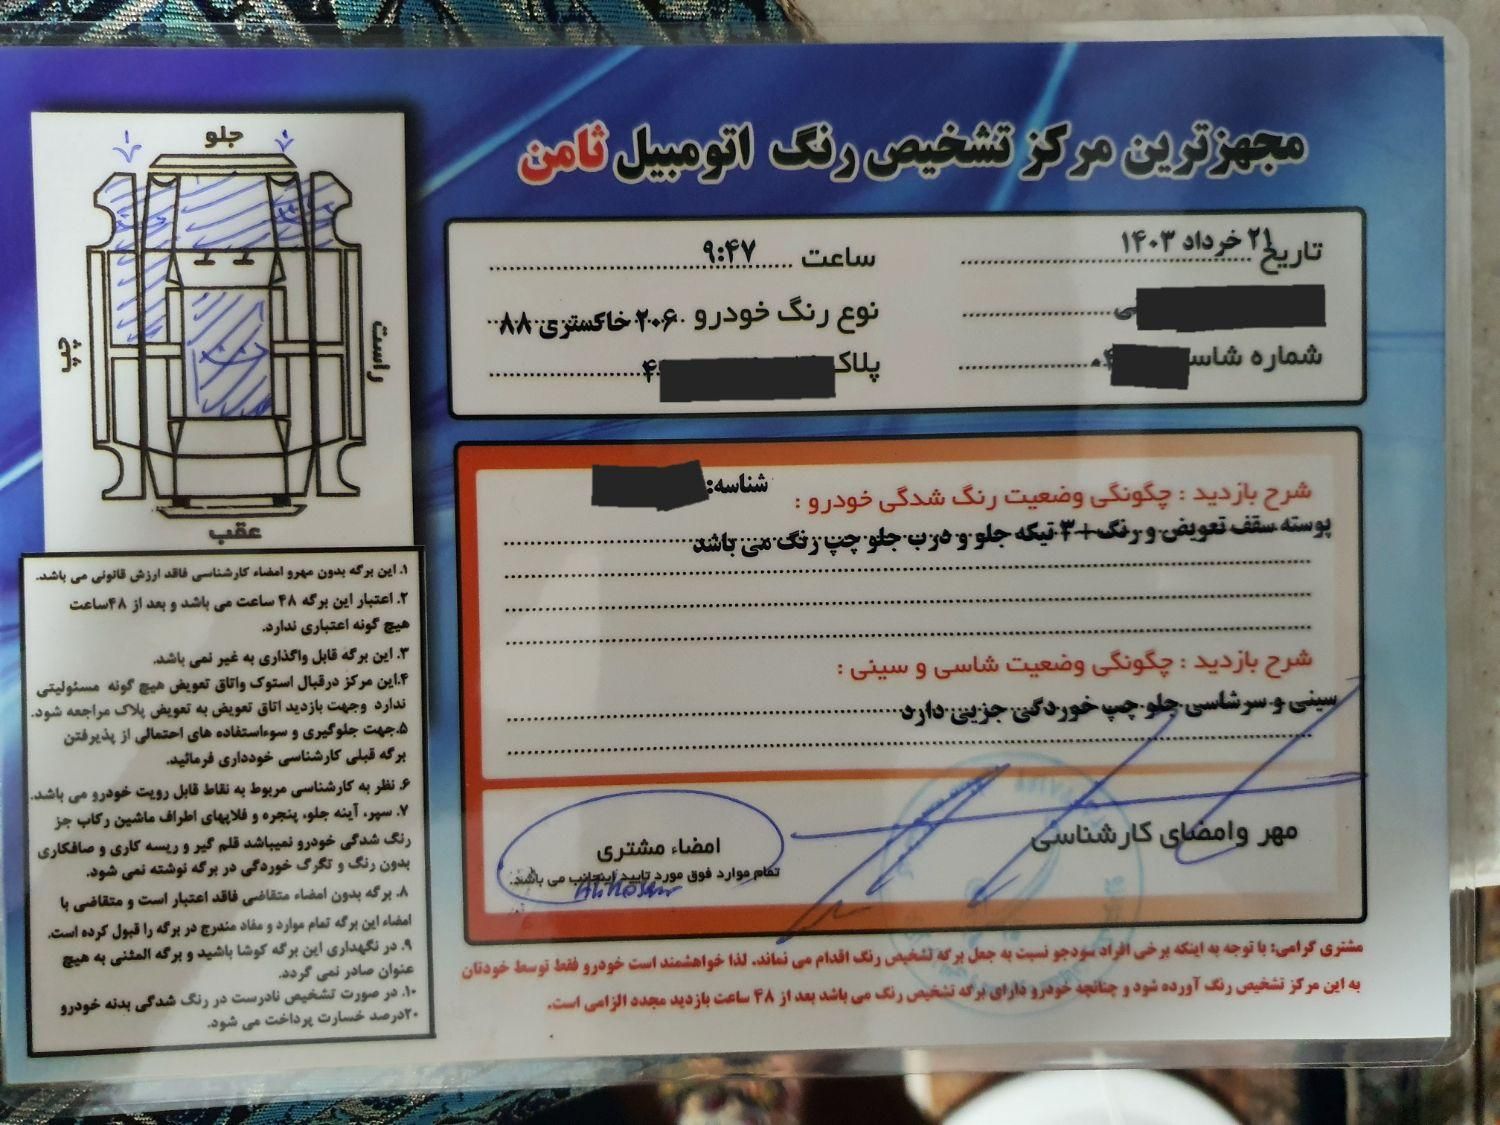 مجهزترین مرکز تشخیص رنگ اتومبیل ثامن
تاریخ ۲۱ خرداد ۱۴۰۳
ساعت ۹:۴۷
نوع رنگ خودرو ۲۰۶ خاکستری ۸۸
شماره شاسی
پلاک
شرح بازدید : چگونگی وضعیت رنگ شدگی خودرو :
شناسه:
پوسته سقف تعویض و رنگ+۳ تیکه جلو و درب جلو چپ رنگ می باشد
شرح بازدید : چگونگی وضعیت شاسی و سینی :
سینی و سرشاسی جلو چپ خوردگی جزیی دارد
مهر وامضای کارشناسی
امضاء مشتری
تمام موارد فوق مورد تایید اینجانب می باشد.
مشتری گرامی: با توجه به اینکه برخی افراد سودجو نسبت به جعل برگه تشخیص رنگ اقدام می نماند. لذا خواهشمند است خودرو فقط توسط خودتان
به این مرکز تشخیص رنگ آورده شود و چنانچه خودرو دارای برگه تشخیص رنگ می باشد بعد از ۴۸ ساعت بازدید مجدد الزامی است.
جلو
چپ
راست
عقب
۱. این برگه بدون مهرو امضاء کارشناسی فاقد ارزش قانونی می باشد.
۲. اعتبار این برگه ۴۸ ساعت می باشد و بعد از ۴۸ساعت
هیچ گونه اعتباری ندارد.
۳. این برگه قابل واگذاری به غیر نمی باشد.
۴.این مرکز درقبال استوک واتاق تعویض هیچ گونه مسئولیتی
ندارد وجهت بازدید اتاق تعویض به تعویض پلاک مراجعه شود.
۵.جهت جلوگیری و سوءاستفاده های احتمالی از پذیرفتن
برگه قبلی کارشناسی خودداری فرمائید.
۶. نظر به کارشناسی مربوط به نقاط قابل رویت خودرو می باشد.
۷. سپر، آینه جلو، پنجره و فلاپهای اطراف ماشین رکاب جز
رنگ شدگی خودرو نمیباشد قلم گیر و ریسه کاری و صافکاری
بدون رنگ و تگرگ خوردگی در برگه نوشته نمی شود.
۸. برگه بدون امضاء متقاضی فاقد اعتبار است و متقاضی با
امضاء این برگه تمام موارد و مفاد مندرج در برگه را قبول کرده است.
۹. در نگهداری این برگه کوشا باشید و برگه المثنی به هیچ
عنوان صادر نمی گردد.
۱۰. در صورت تشخیص نادرست در رنگ شدگی بدنه خودرو
۲۰درصد خسارت پرداخت می شود.